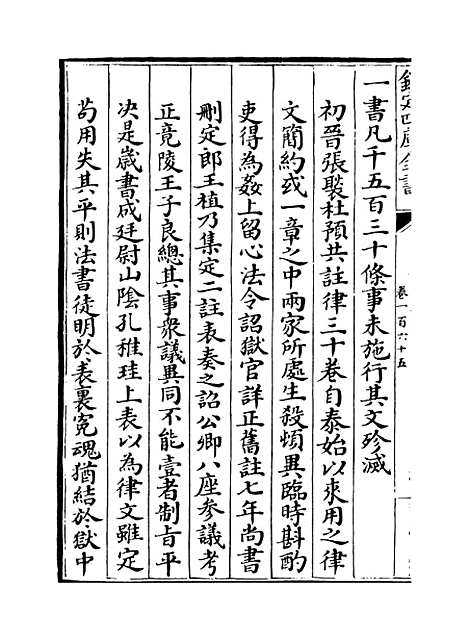 欽定四庫全書
卷一百六十五
一書凡千五百三十條事未施行其文殄滅
初晉張裴杜預共註律三十卷自泰始以來用之律
文簡約或一章之中兩家所處生殺頓異臨時斟酌
吏得為姦上留心法令詔獄官詳正舊註七年尚書
刪定郎王植乃集定二註表奏之詔公卿八座參議考
正竟陵王子良總其事衆議異同不能壹者制㫖平
決是歲書成廷尉山隂孔稚珪上表以為律文雖定
茍用失其平則法書徒明於𥘉裏寃魂猶結於獄中